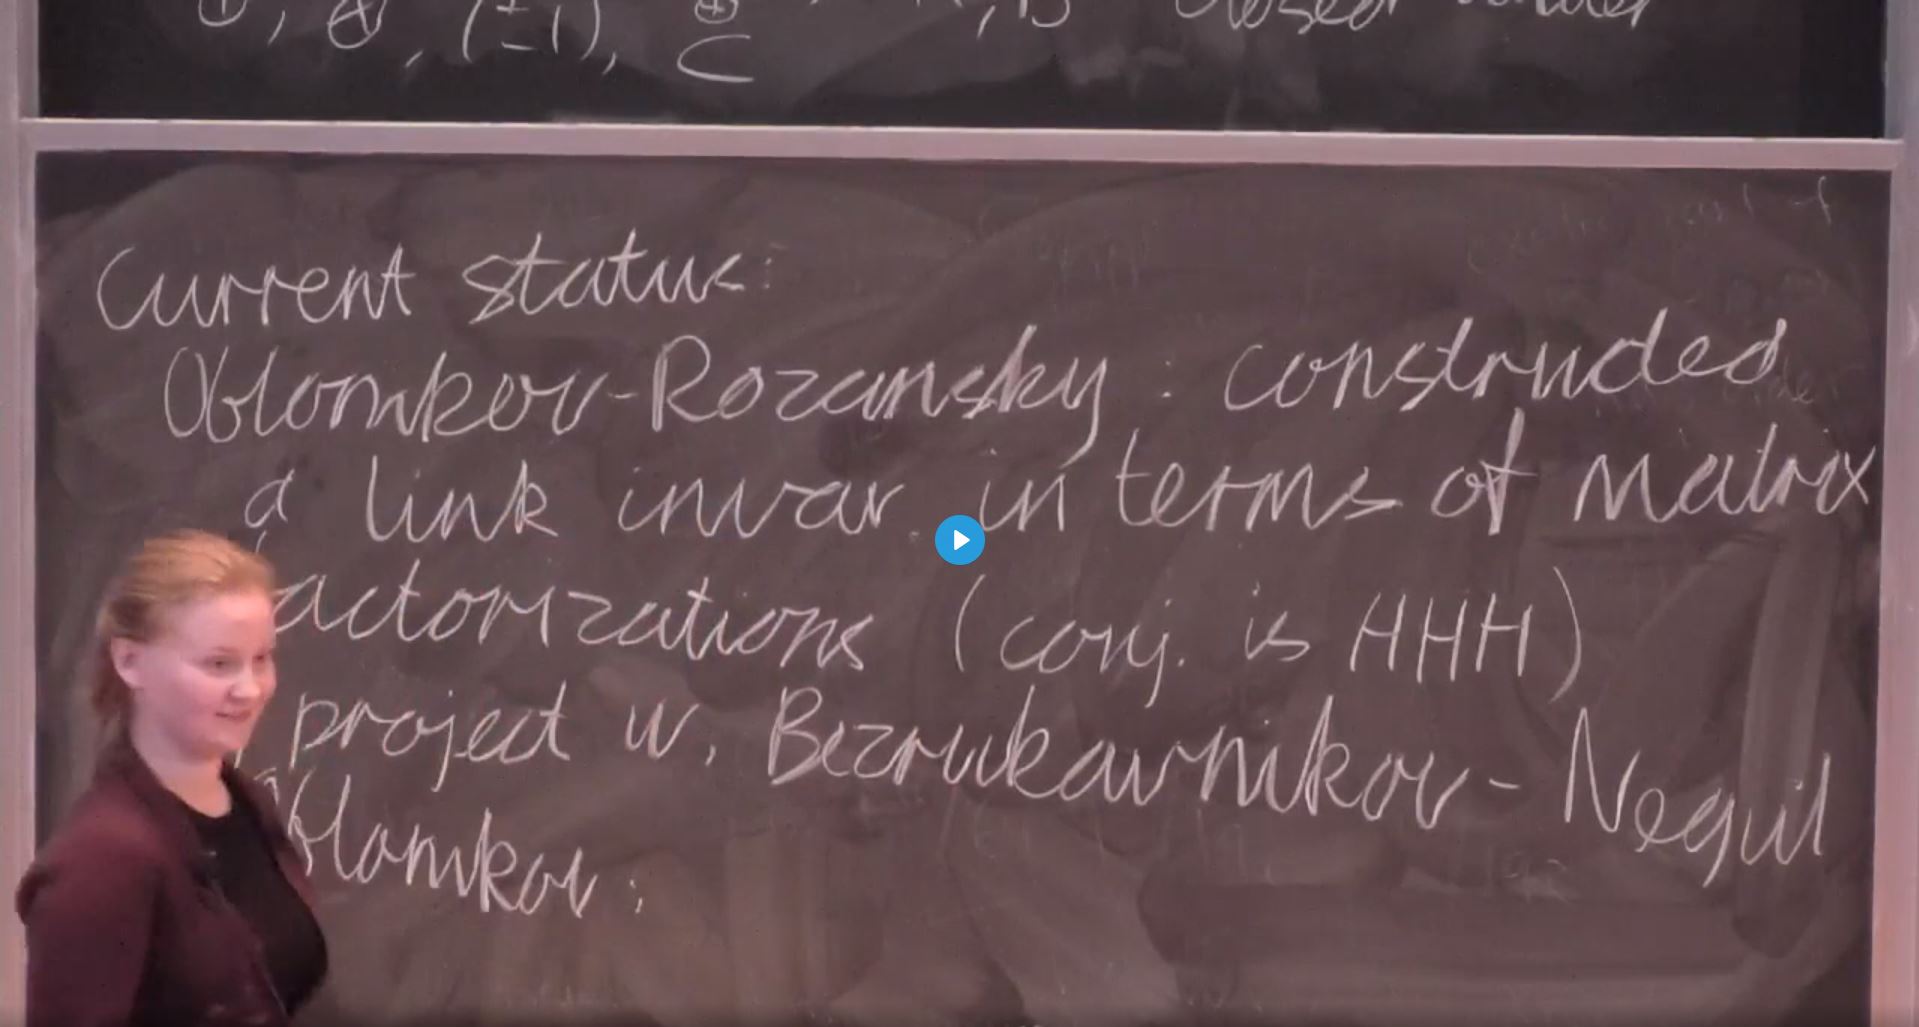 ⊕, ⊗, (±1), ⊕ closed under
⊂
Current status:
Oblomkov-Rozansky : constructed
a link invar. in terms of matrix
factorizations (conj. is HHH)
project w. Bezrukavnikov - Negut
Oblomkov :